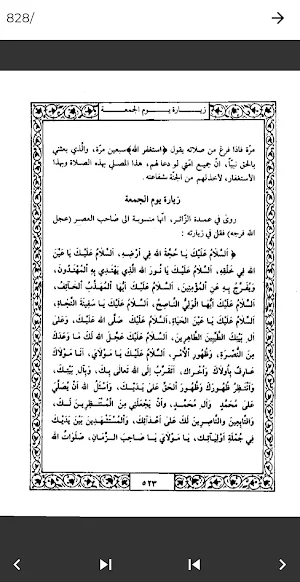 828/
زيـــارة يـــوم الجمعـــة
مرّة فاذا فرغ من صلاته يقول ﴿استغفر الله﴾ سبعين مرّة، والّذي بعثني
بالحق نبيّاً، انّ جميع امّتي لو دعا لهم، هذا المصلي بهذه الصلاة وبهذا
الأستغفار، لأخذلهم من الجنّة بشفاعته.
زيارة يوم الجمعة
روىٰ في عمـدة الزّائـر، انّها منسوبـة الى صاحب العصـر (عجل
الله فرجه) فقل في زيارته :
﴿ اَلسَّلامُ عَلَيْكَ يا حُجَّةَ اللهِ فِي اَرْضِهِ، اَلسَّلامُ عَلَيْكَ يا عَيْنَ
اللهِ فِي خَلْقِهِ، اَلسَّلامُ عَلَيْكَ يا نُورَ اللهِ الَّذِي يَهْتَدِي بِهِ الْمُهْتَدُونَ،
وَيُفَرَّجُ بِهِ عَنِ الْمُؤْمِنِينَ، اَلسَّلامُ عَلَيْكَ اَيُّهَا الْمُهَذَّبُ الْخائِفُ،
اَلسَّلامُ عَلَيْكَ اَيُّهَا الْوَلِيُّ النّاصِحُ، اَلسَّلامُ عَلَيْكَ يا سَفِينَةَ النَّجاةِ،
اَلسَّلامُ عَلَيْكَ يا عَيْنَ الْحَياةِ، اَلسَّلامُ عَلَيْكَ صَلَّى اللهُ عَلَيْكَ، وَعَلىٰ
آلِ بَيْتِكَ الطَّيِّبِينَ الطّاهِرِينَ، اَلسَّلامُ عَلَيْكَ عَجَّلَ اللهُ لَكَ ما وَعَدَكَ
مِنَ النُّصْرَةِ، وَظُهُورِ الْأَمْرِ، اَلسَّلامُ عَلَيْكَ يا مَوْلايَ، اَنَا مَوْلاكَ
عارِفٌ بِاُولاكَ وَاُخْراكَ، اَتَقَرَّبُ اِلَى اللهِ تَعالىٰ بِكَ، وَبِآلِ بَيْتِكَ،
وَاَنْتَظِرُ ظُهُورَكَ وَظُهُورَ الْحَقِّ عَلىٰ يَدَيْكَ، وَاَسْئَلُ اللهَ اَنْ يُصَلِّيَ
عَلىٰ مُحَمَّدٍ وَآلِ مُحَمَّدٍ، وَاَنْ يَجْعَلَنِي مِنَ الْمُنْتَظِرِينَ لَكَ،
وَالتّابِعِينَ وَالنّاصِرِينَ لَكَ عَلىٰ اَعْدائِكَ، وَالْمُسْتَشْهَدِينَ بَيْنَ يَدَيْكَ
فِي جُمْلَةِ اَوْلِيائِكَ، يا مَوْلايَ يا صاحِبَ الزَّمانِ، صَلَواتُ اللهِ
٥٢٣